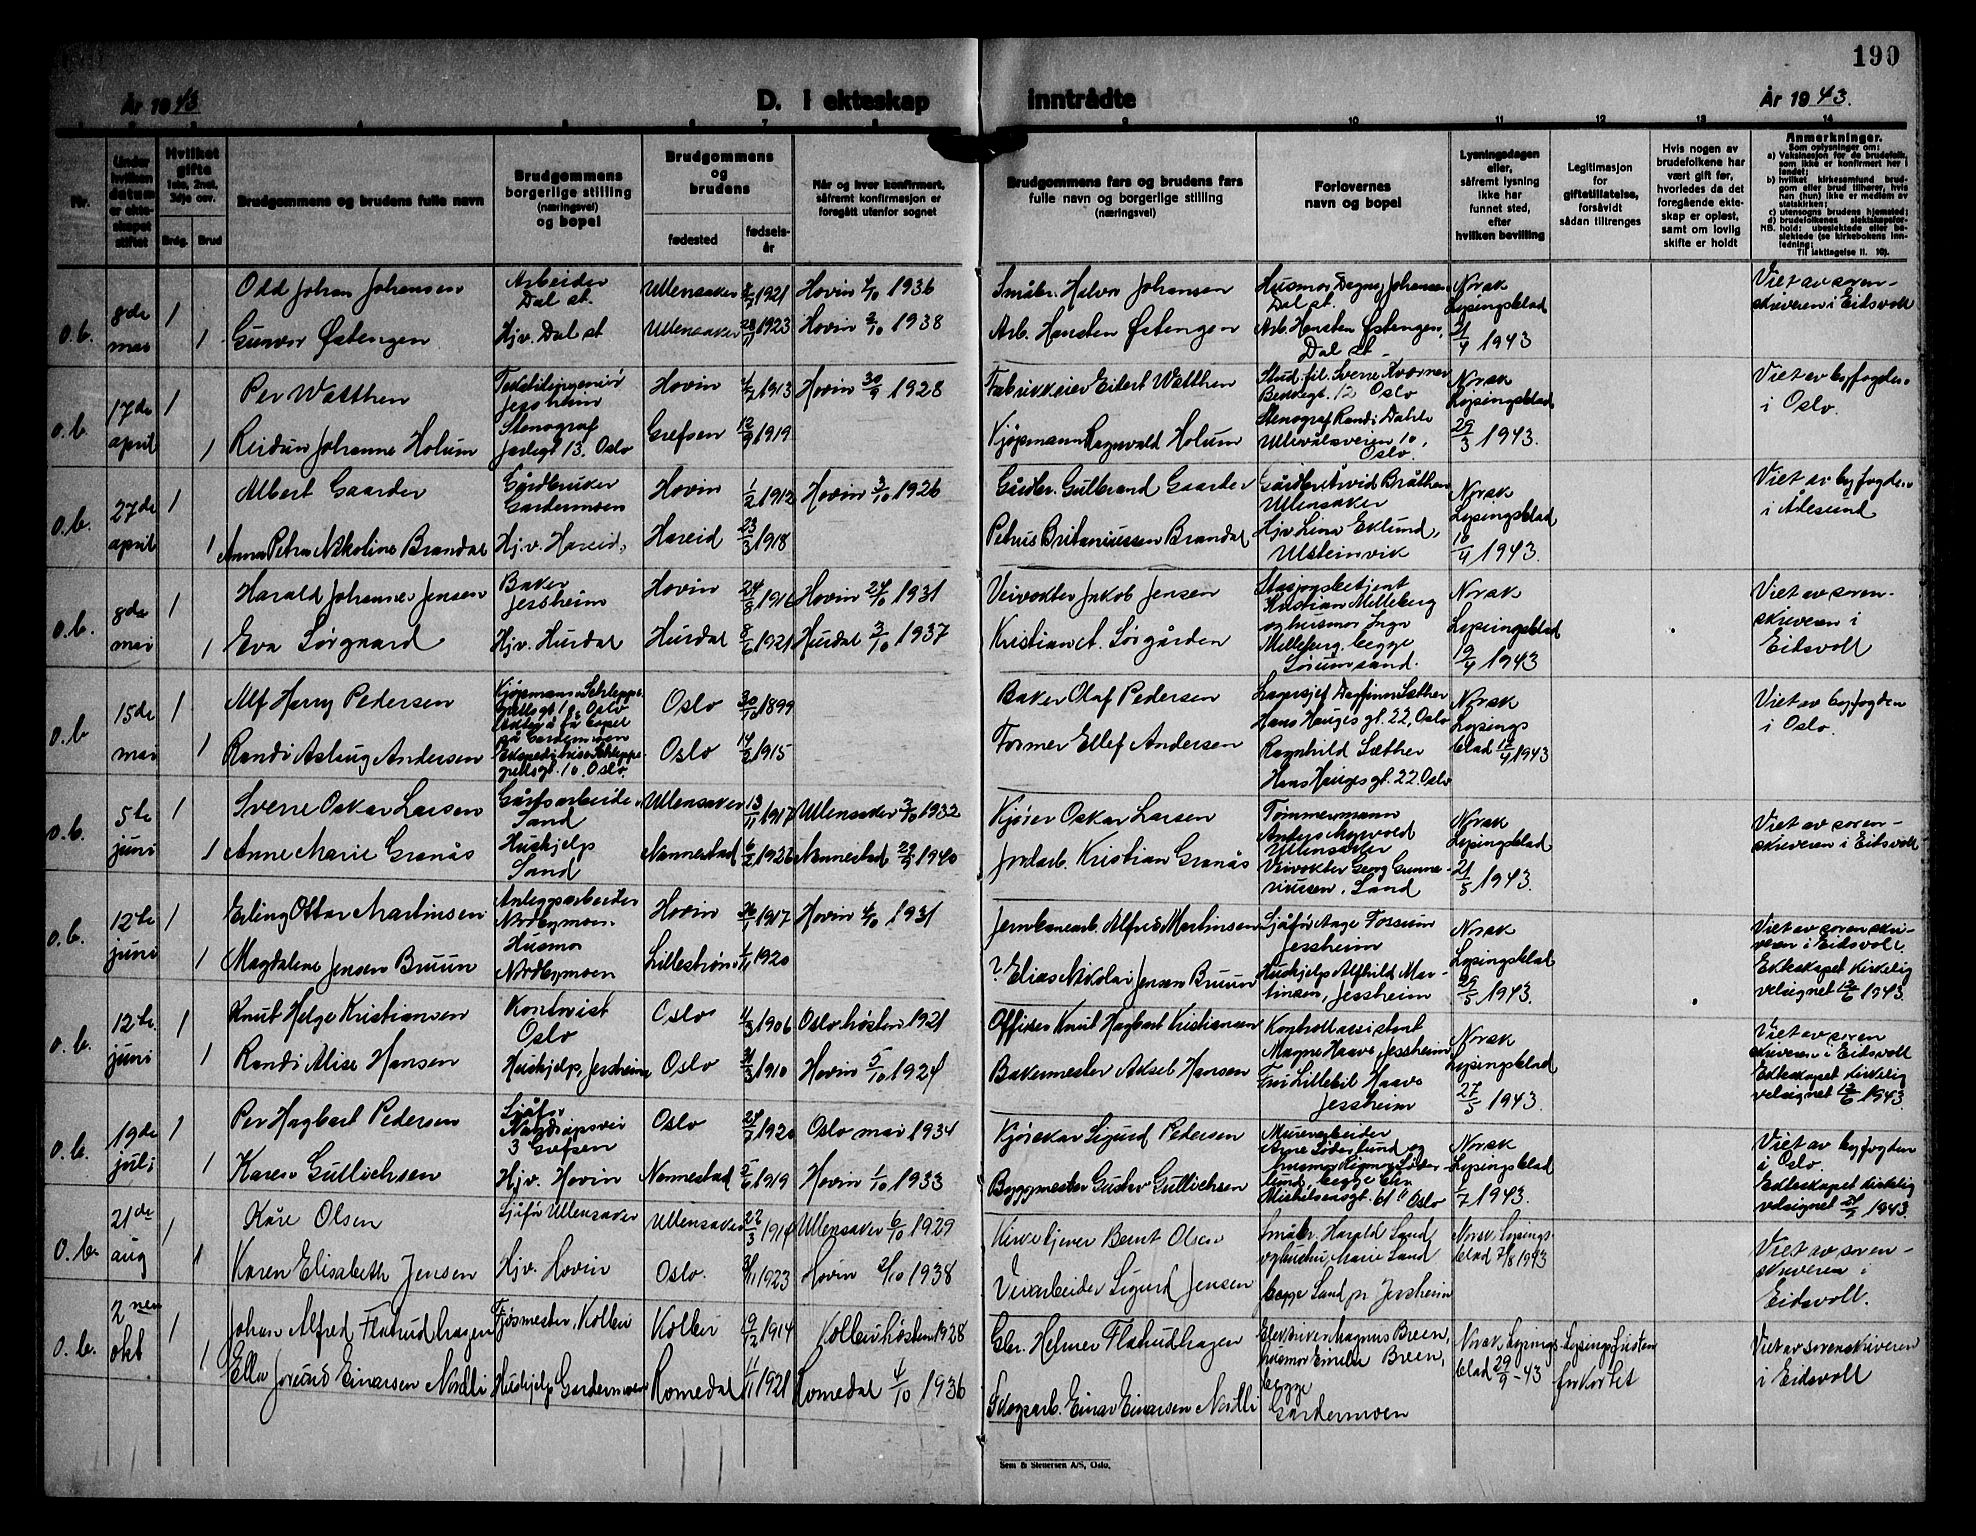 190
År 1943
D. I ekteskap
inntrådte
År 1943.
Nr.
Under hvilken datum er ekteskapet stiftet
Hvilket gifte
1ste, 2net, 3dje osv.
Brdg.
Brud
Brudgommens og brudens fulle navn
Brudgommens borgerlige stilling (næringsvei) og bopel
Brudgommens og brudens
fødested
fødselsår
Når og hvor konfirmert, såfremt konfirmasjon er foregått utenfor sognet
Brudgommens fars og brudens fars fulle navn og borgerlige stilling (næringsvei)
Forlovernes navn og bopel
Lysningsdagen eller, såfremt lysning ikke har funnet sted, efter hvilken bevilling
Legitimasjon for giftetillatelse, forsåvidt sådan tiltrenges
Hvis nogen av brudefolkene har vært gift før, hvorledes da det foregående ekteskap er opløst, samt om lovlig skifte er holdt
Anmerkninger.
Som oplysninger om:
a) Vaksinasjon for de brudefolk, som ikke er konfirmert her i landet;
b) hvilket kirkesamfund brudgom eller brud tilhører, hvis han (hun) ikke er medlem av statskirken;
c) utensogns brudens hjemsted;
d) brudefolkenes slektskapsforhold: ubeslektede eller beslektede (se kirkebokens innledning;
NB.
Til iakttagelse II. 10).
o.b. 8de mai 1 Odd Johan Johansen Arbeider Dal st. Ullensaker 1921 Hovin 4/10 1936 Småbr. Halvor Johansen Husmor Dagny Johansen Dal st. Norsk Lysingsblad 21/4 1943 Viet av sorenskriveren i Eidsvoll
1 Gunvor Østengen Hjv. Dal st Ullensaker 1923 Hovin 2/10 1938 Arb. Hansten Østengen Arb. Hansten Østengen, Dal st.
o.b. 17de april 1 Per Watthen Tekstilingeniør Jessheim Hovin 1913 Hovin 30/9 1928 Fabrikkeier Eilert Watthen Stud. fil. Sverre Kværner 12 Oslo Norsk Lysingsblad 29/3 1943. Viet av byfogden i Oslo.
1 Reidun Johanne Holum Stenograf Jarlegt 13. Oslo Grefsen 12/9 1919 Kjøpmann Ragnvald Holum Stenograf Randi Dahle Ullevålsveien 10, Oslo.
o.b. 27de april 1 Albert Gaarder Gårdbruker Gardermoen Hovin 1/2 1912 Hovin 3/10 1926 Gårdbr. Gulbrand Gaarder Gårdbr. Arvid Bråthen Ullensaker Norsk Lysingsblad 10/4 1943. Viet av byfogden i Ålesund
1 Anna Petra Nikoline Brandal Hjv. Hareid, Hareid 23/3 1918 Petrus Britaniussen Brandal Hjv Lina Eklund, Ulsteinvik
o.b. 8de mai 1 Harald Johannes Jensen Baker Jessheim Hovin 24/9 1916 Hovin 24/10 1931 Veivokter Jakob Jensen Stasjonsbetjent Kristian Melleberg og husmor Inga Melleberg, begge Sørumsand. Norsk Lysingsblad 19/4 1943 Viet av sorenskriveren i Eidsvoll
1 Eva Sørgaard Hjv. Hurdal Hurdal 8/6 1921 Hurdal 3/10 1937 Kristian Sørgården
o.b 15de mai 1 Alf Harry Pedersen Kjøpmann Schleppegrellsgt 10 Oslo på Gardermoen Oslo 30/10 1899 Baker Olaf Pedersen Lagersjef Dagfinn Sæther Hans Hauges gt. 22, Oslo Norsk Lysingsblad 12/4 1943 Viet av byfogden i Oslo.
1 Randi Aslaug Andersen Schleppegrellsgt. 10. Oslo Oslo 1915 Former Ellef Andersen Ragnhild Sæther Hans Hauges gt. 22. Oslo
o.b. 5te juni 1 Sverre Oskar Larsen Gårdsarbeider Sand Ullensaker 13/11 1917 Ullensaker 2/10 1932 Kjører Oskar Larsen Tømmermann Anders Ullensaker Norsk Lysingsblad 21/5 1943. Viet av sorenskriveren i Eidsvoll
1 Anne Marie Granås Hushjelp Sand Nannestad 1926 Nannestad 29/9 1940 Kristian Granås Veivokter Georg Gunneriussen, Sand
o.b. 12te juni 1 Erling Ottar Martinsen Anleggsarbeider Nordbymoen Hovin 1917 Hovin 4/10 1931 Jernbanearb. Alfred Martinsen Sjåfør Aage Fossum Jessheim Norsk Lysingsblad 29/5 1943. Viet av sorenskriveren i Eidsvoll. Ekteskapet kirkelig velsignet 12/6 1943.
1 Magdalene Jensen Bruun Husmor Nordbymoen Lillestrøm 1920 ? Elias Nikolai Jensen Bruun Hushjelp Alfhild Martinsen, Jessheim
o.b. 12te juni 1 Knut Helge Kristiansen Kontorist Oslo Oslo 1906 Oslo høsten 1921 Offiser Knut Hagbart Kristiansen Kontrollassistent Magne Haave, Jessheim Norsk Lysingsblad 27/5 1943. Viet av sorenskriveren i Eidsvoll Ekteskapet kirkelig velsignet 12/6 1943.
1 Randi Alise Hansen Hushjelp, Jessheim Oslo 31/3 1910 Hovin 5/10 1924 Bakermester Aksel Hansen Fru Lillebil Haave Jessheim
o.b. 19de juli 1 Per Hagbart Pedersen Sjåfør 3 Grefsen Oslo 24/7 1920 Oslo mai 1934 Kjørekar Sigurd Pedersen Murerarbeider Arne Söderlund og husmor Söderlund, begge Oslo Norsk Lysingsblad 1943. Viet av byfogden i Oslo. Ekteskapet kirkelig velsignet 1943.
1 Karen Gullichsen Hjv. Hovin Nannestad 1919 Hovin 1/10 1933 Byggmester Gustav Gullichsen
o.b. 21de aug 1 Kåre Olsen Sjåfør Ullensaker Ullensaker 22/3 1914 Ullensaker 6/10 1929 Kirketjener Bernt Olsen Småbr. Harald Sand og hustru, Marie Sand begge Sand pr Jessheim Norsk Lysingsblad 7/8 1943 Viet av sorenskriveren i Eidsvoll.
1 Karen Elisabeth Jensen Hjv. Hovin Oslo. 1923 Hovin 2/10 1938 Veiarbeider Sigurd Jensen
o.b. 2nen okt 1 Johan Alfred Flahudhagen Fjøsmester, Kolbu Kolbu 19/2 1914 Kolbu høsten 1928 Gbr. Helmer Flahudhagen Magnus Breen, husmor Breen, begge Gardermoen Norsk Lysingsblad 29/9 - 43 Lysingsfristen forkortet Viet av sorenskriveren i Eidsvoll
1 Ella Jorund Einarsen Nordli Hushjelp Gardermoen Romedal 1921 Romedal 4/10 1936 Skogsarb. Einar Einarsen Nordli
Sem & Stenersen A/S, Oslo.